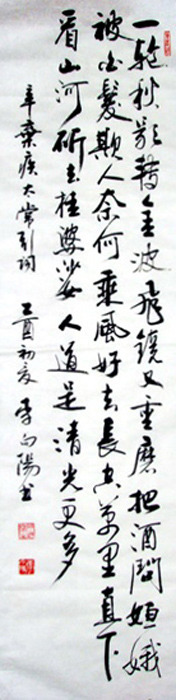 一輪秋影轉金波飛鏡又重磨把酒問姮娥
被白髮欺人奈何乘風好去長空萬里直下
看山河斫去桂婆娑人道是清光更多
辛棄疾太常引詞 乙酉初夏 李向陽书